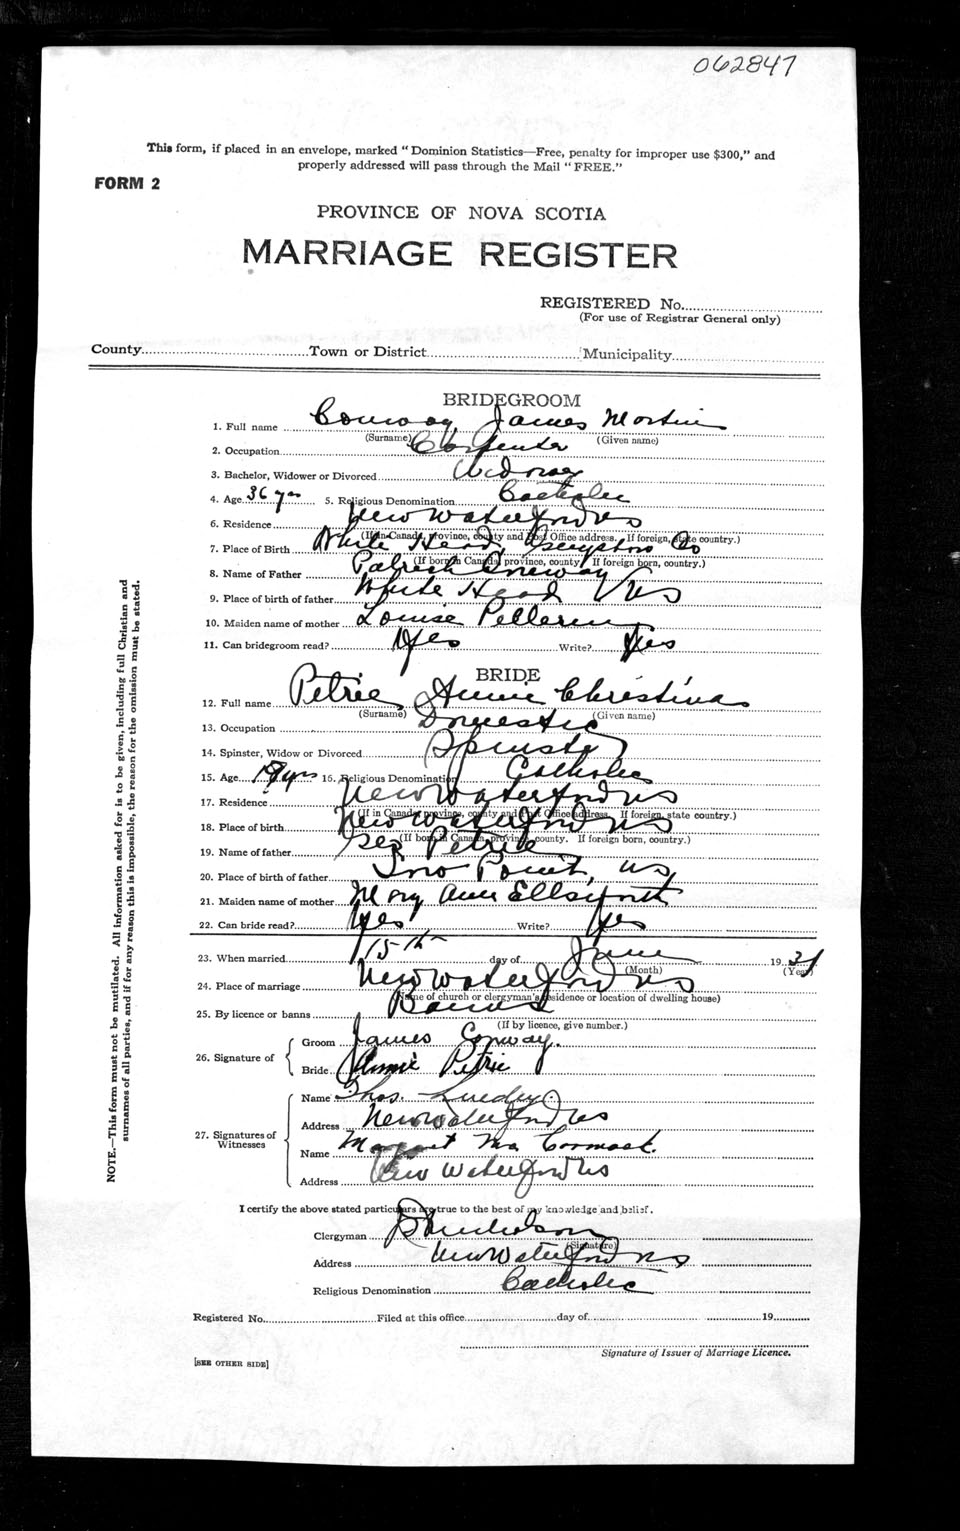 062847
This form, if placed in an envelope, marked "Dominion Statistics—Free, penalty for improper use $300," and
properly addressed will pass through the Mail "FREE."
FORM 2
PROVINCE OF NOVA SCOTIA
MARRIAGE REGISTER
REGISTERED No.
(For use of Registrar General only)
County Town or District Municipality
BRIDEGROOM
1. Full name Conway James Martin
(Surname) (Given name)
2. Occupation Carpenter
3. Bachelor, Widower or Divorced Widower
4. Age 36 yrs 5. Religious Denomination Catholic
6. Residence New Waterford NS
(If in Canada, province, county and Post Office address. If foreign, state country.)
7. Place of Birth White Head, Guysboro Co
(If born in Canada, province, county. If foreign born, country.)
8. Name of Father Patrick Conway
9. Place of birth of father White Head NS
10. Maiden name of mother Louise Pellerin
11. Can bridegroom read? Yes Write? Yes
BRIDE
12. Full name Petrie Annie Christina
(Surname) (Given name)
13. Occupation Domestic
14. Spinster, Widow or Divorced Spinster
15. Age 19 yrs 16. Religious Denomination Catholic
17. Residence New Waterford NS
(If in Canada, province, county and Post Office address. If foreign, state country.)
18. Place of birth New Waterford NS
(If born in Canada, province, county. If foreign born, country.)
19. Name of father Geo Petrie
20. Place of birth of father Point, NS
21. Maiden name of mother Mary Ann Ellsworth
22. Can bride read? Yes Write? Yes
23. When married 15th day of June 1931
(Month) (Year)
24. Place of marriage New Waterford NS
(Name of church or clergyman's residence or location of dwelling house)
25. By licence or banns Banns
(If by licence, give number.)
26. Signature of Groom James Conway.
Bride Annie Petrie
27. Signatures of Witnesses Name Thos.
Address New Waterford NS
Name Margaret Mc Cormack.
Address New Waterford NS
I certify the above stated particulars are true to the best of my knowledge and belief.
Clergyman Nicholson
(Signature)
Address New Waterford NS
Religious Denomination Catholic
Registered No. Filed at this office day of 19
Signature of Issuer of Marriage Licence.
[SEE OTHER SIDE]
NOTE.—This form must not be mutilated. All information asked for is to be given, including full Christian and
surnames of all parties, and if for any reason this is impossible, the reason for the omission must be stated.